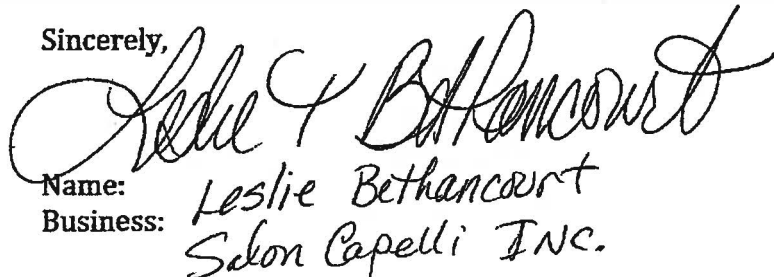 Sincerely,
Leslie Y Bethancourt
Name: Leslie Bethancourt
Business: Salon Capelli INC.